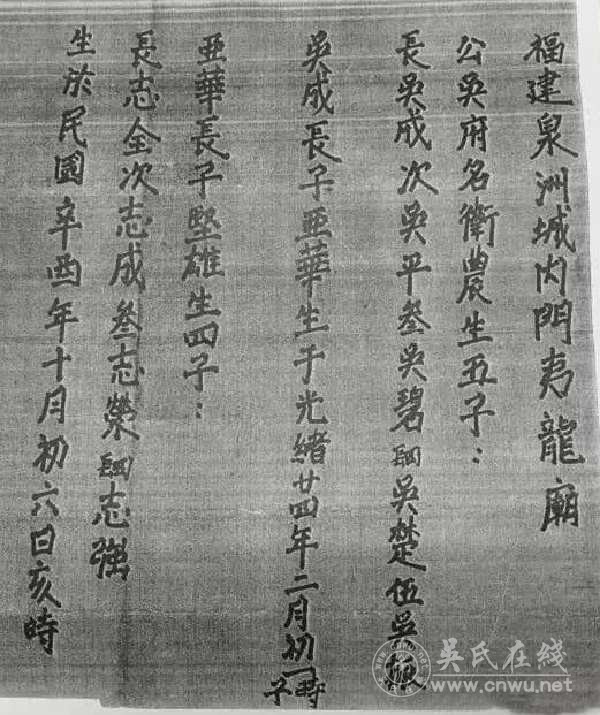 福建泉洲城內門夷龍廟
公吳府名衛農生五子：
長吳成次吳平叄吳碧四吳楚伍吳
吳成長子亜華生于光緒廿四年二月初一子時
亜華長子堅雄生四子：
長志全次志成叄志榮四志強
生於民國辛酉年十月初六日亥時
吳氏在綫
www.cnwu.net